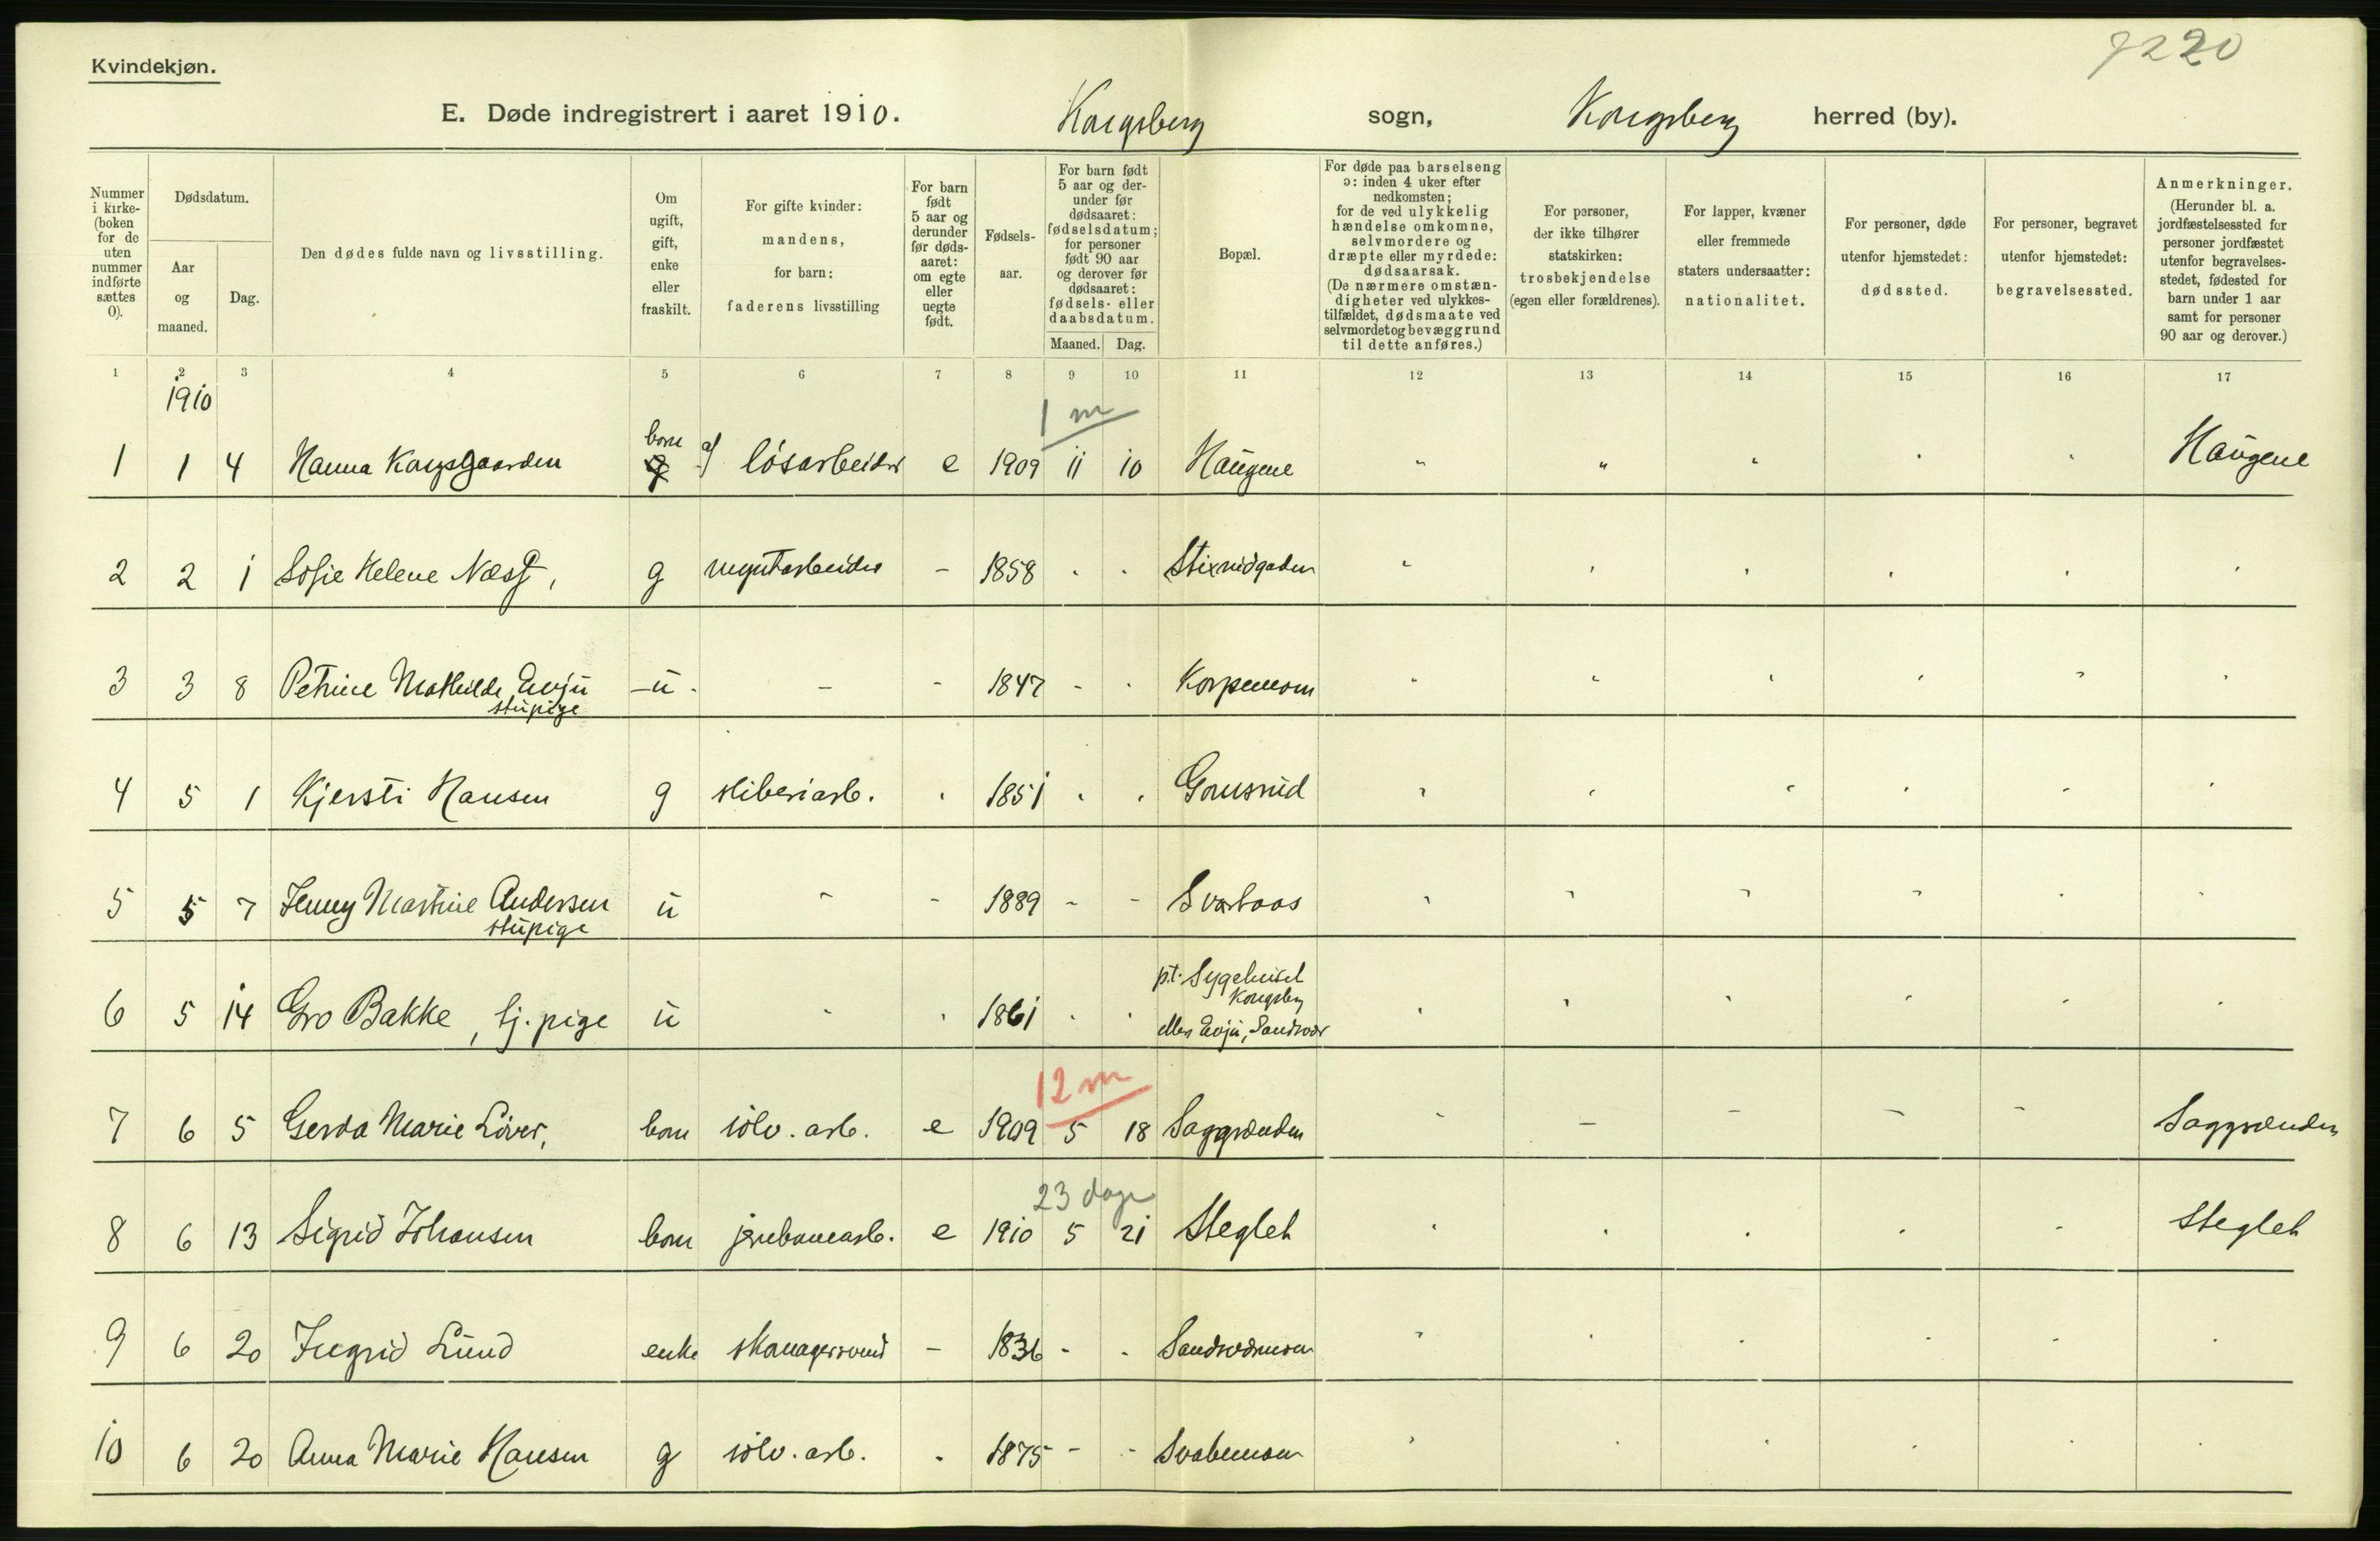 7220
Kvindekjøn.
E. Døde indregistrert i aaret 1910. Kongsberg sogn, Kongsberg herred (by).
Nummer i kirke-(boken for de uten nummer indførte sættes 0).
Dødsdatum.
Aar og maaned.
Dag.
Den dødes fulde navn og livsstilling.
Om ugift, gift, enke eller fraskilt.
For gifte kvinder: mandens, for barn: faderens livsstilling
For barn født 5 aar og derunder før døds-aaret: om egte eller uegte født.
Fødsels-aar.
For barn født 5 aar og der-under før dødsaaret: fødselsdatum; for personer født 90 aar og derover før dødsaaret: fødsels- eller daabsdatum.
Maaned. Dag.
Bopæl.
For døde paa barselseng ɔ: inden 4 uker efter nedkomsten; for de ved ulykkelig hændelse omkomne, selvmordere og dræpte eller myrdede: dødsaarsak. (De nærmere omstæn-digheter ved ulykkes-tilfældet, dødsmaate ved selvmord et og bevæggrund til dette anføres.)
For personer, der ikke tilhører statskirken: trosbekjendelse (egen eller forældrenes).
For lapper, kvæner eller fremmede staters undersaatter: nationalitet.
For personer, døde utenfor hjemstedet: dødssted.
For personer, begravet utenfor hjemstedet: begravelsessted.
Anmerkninger. (Herunder bl. a. jordfæstelsessted for personer jordfæstet utenfor begravelses-stedet, fødested for barn under 1 aar samt for personer 90 aar og derover.)
1 2 3 4 5 6 7 8 9 10 11 12 13 14 15 16 17
1910
1 m
1 1 4 Hanna Kongsgaarden barn af løsarbeider e 1909 11 10 Haugene " " " " " Haugene
2 2 1 Sofie Helene Næss, g myntarbeider - 1858 - -
3 3 8 Petrine Mathilde Evju - u - - - 1847 - - Korpemoen
stupige
4 5 1 Kjersti Hansen g sliberiarb. - 1851 - - Gomsrud
5 5 7 Jenny Martine Andersen u - - 1889 - - Svartaas
stupige
pt. Sygehuset
Kongsberg
6 5 14 Gro Bakke, tj. pige u - - 1861 - - ellers Evju, Sandsvær
12 m
7 6 5 Gerda Marie Löver, barn sølv. arb. e 1909 5 18 Saggrenden - - - - - Saggrenden
23 dage
8 6 13 Sigrid Johansen barn jernbanearb. e 1910 5 21 Steglet Steglet
9 6 20 Ingrid Lund enke - 1836 - -
10 6 20 Anna Marie Hansen g sølv. arb. - 1875 - - Svabemoen